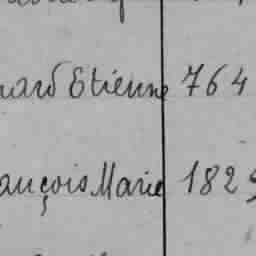 nard Etienne 764
ançois Marie 1829